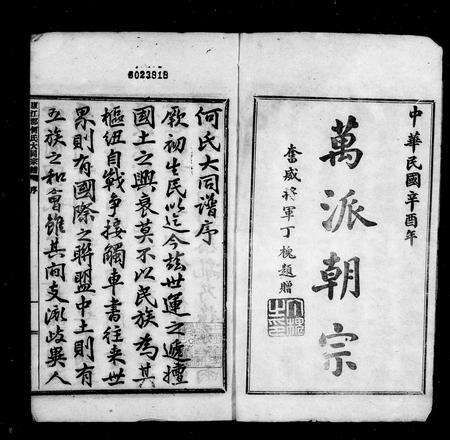 6023818
中華民國辛酉年
萬派朝宗
奮威將軍丁槐題贈
何氏大同譜序
厥初生民以迄今茲世運之遞擅
國土之興衰莫不以民族為其
樞紐自戰爭接觸車書往來世
界則有國際之聯盟中土則有
五族之和會雖其間支派歧異人
廬江郡何氏大同宗譜 序